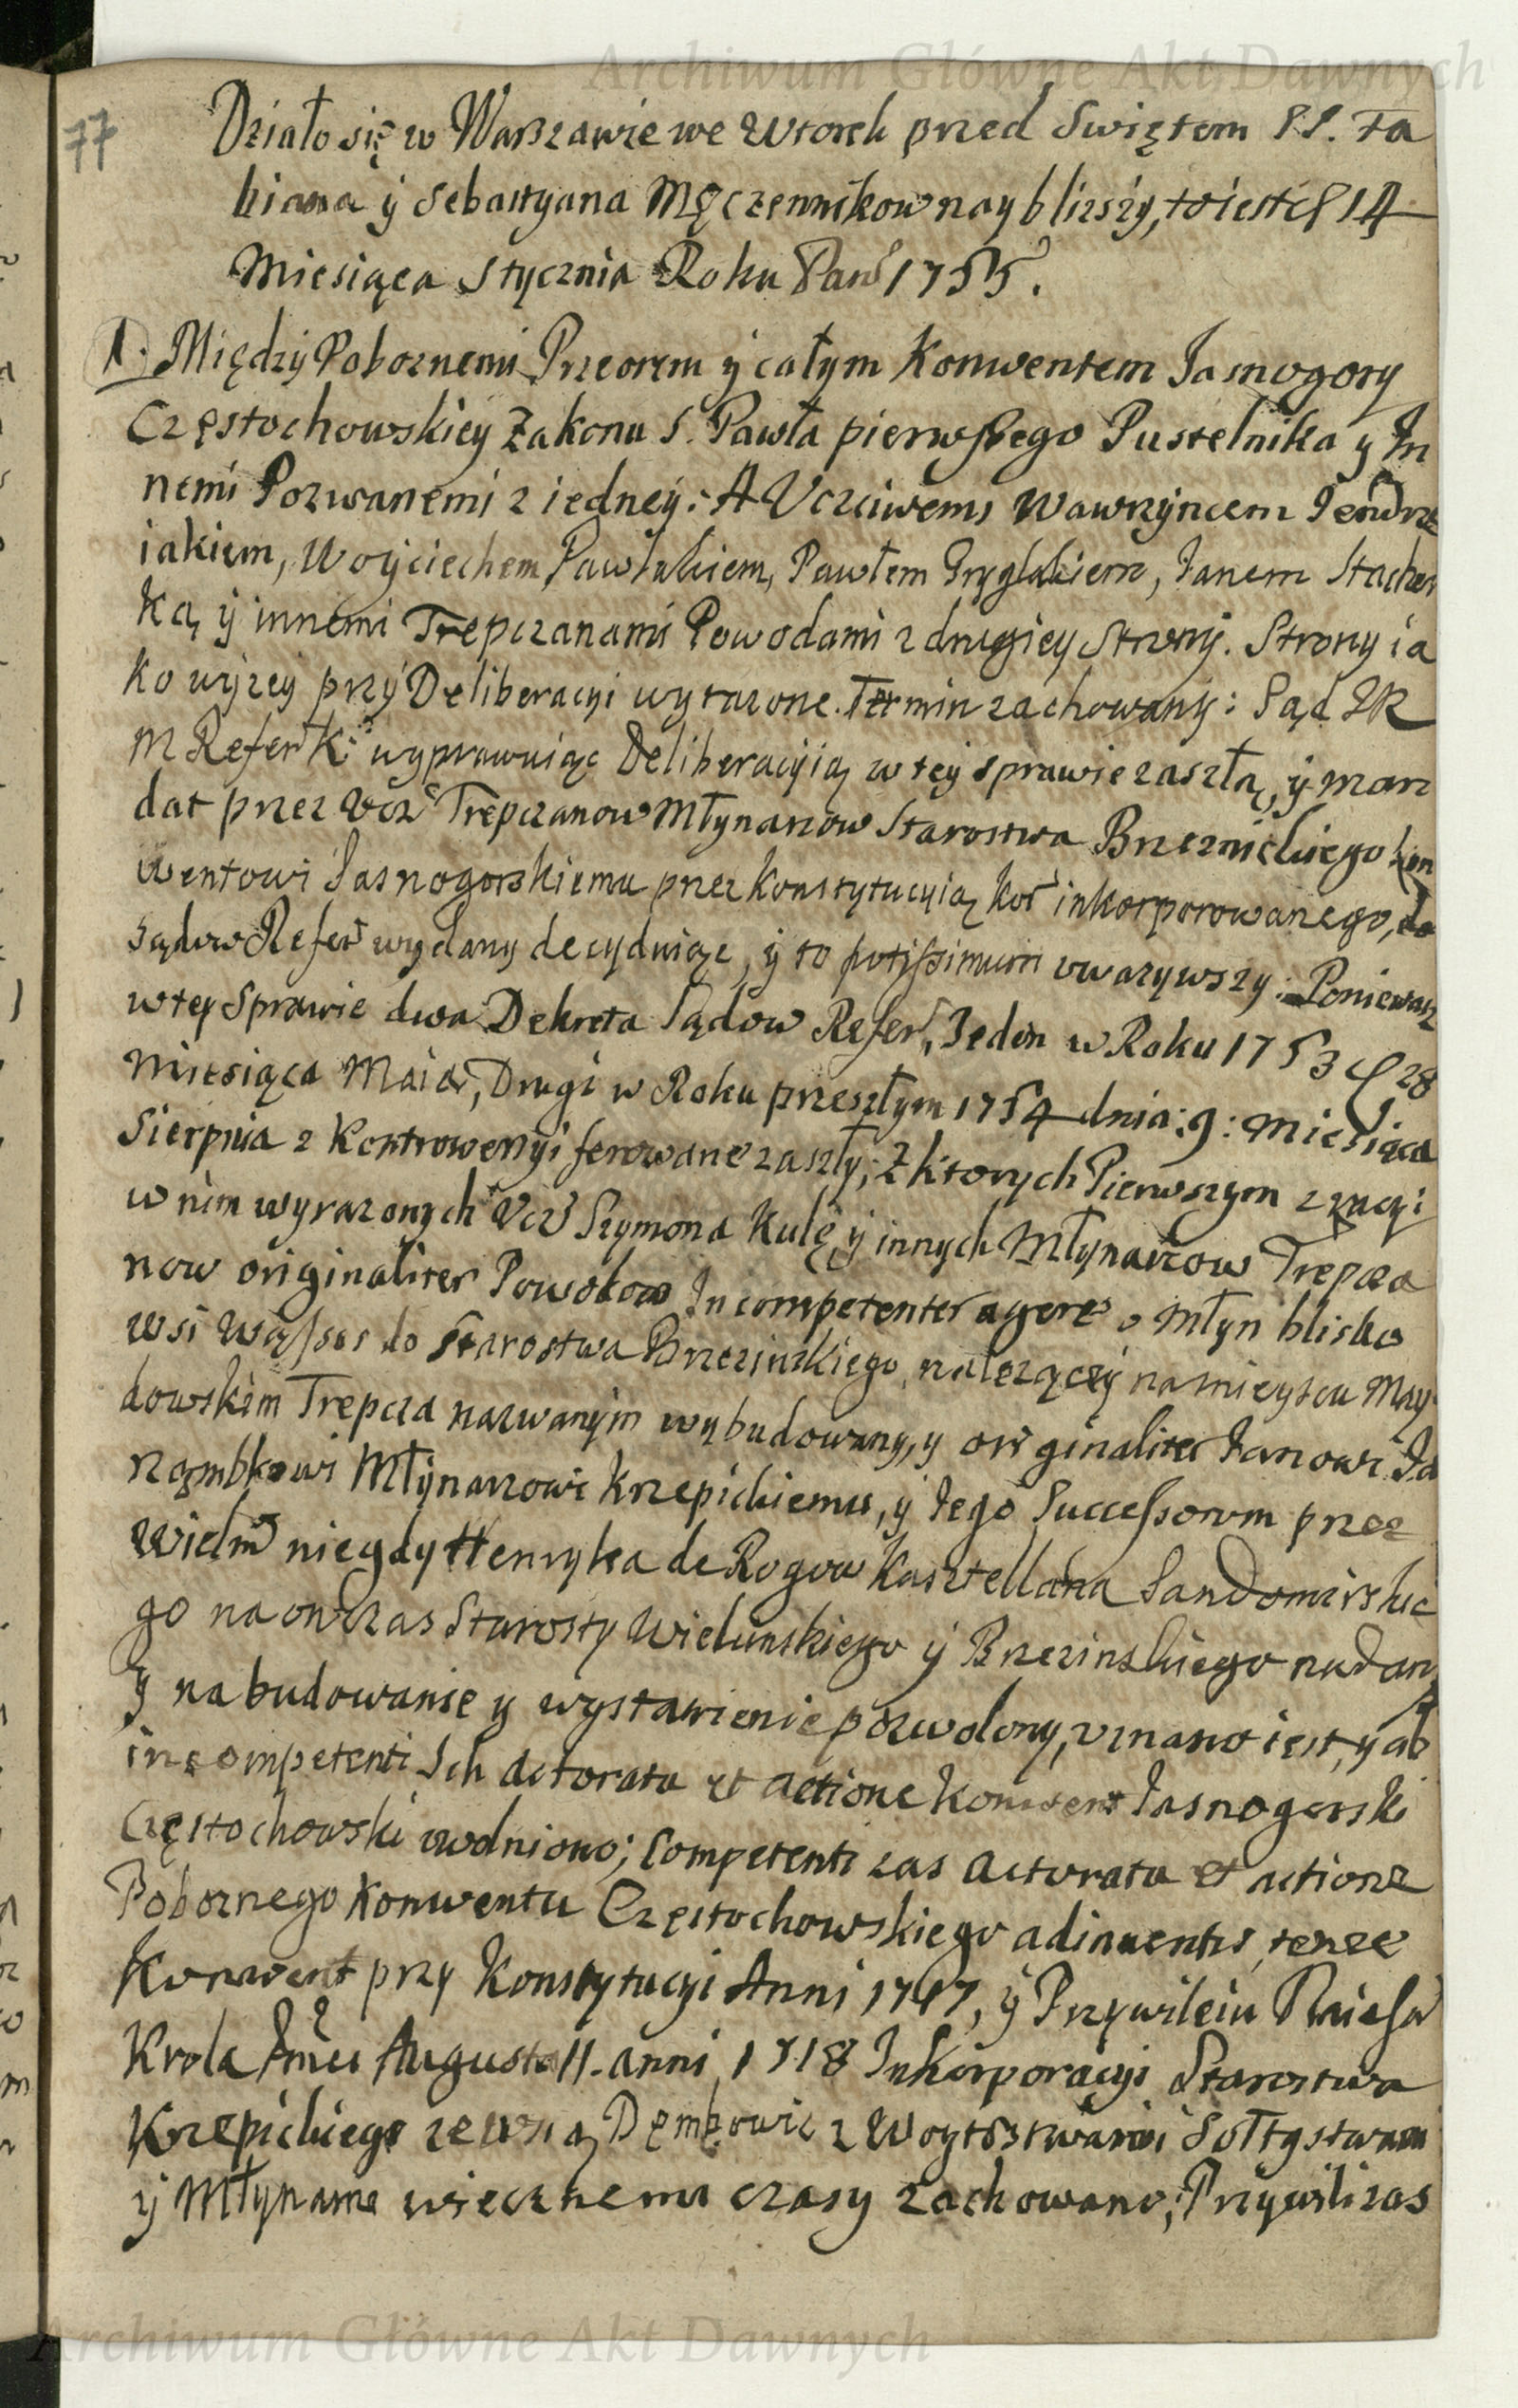 Archiwum Główne Akt Dawnych
77
Działo się w Warszawie we Wtorek przed Swiętem SS. Fa
biana ÿ Sebastyana Męczennikow naybliższÿ, to iest d 14
Miesiąca Stycznia Roku Pań 1755.
1. MiędzyPobożnemi Przeorem ÿ całym Konwentem Jasnogory
Częstochowskiey Zakonu S. Pawła pierwszego Pustelnika y In
nemi Pozwanemi z iedneÿ: A Vczciwemi Wawrzyńcem Jendrze
iakiem, Woyciechem Pawlakiem, Pawłem Gryglakiem, Janem Stachow
ką ÿ innemi Trepczanami Powodami z drugiey Stronÿ. Strony ia
ko wÿzeÿ przÿ Deliberacyi wyrazone. Termin zachowanÿ: Sąd JK
M Referki wyprawuiąc Deliberacyią w teÿ sprawie zaszłą, ÿ man
dat przez Vcz Trepczanow Młynarzow Starostwa Brzeznickiego Kon
wentowi Jasnogorskiemu przez Konstytucyią Kor inkorporowanego, do
Sądow Refer wydany decyduiąc, ÿ to potissimum uważywszy: Poniewasz
wteÿ Sprawie dwa Dekreta Sądow Refer, Jeden w Roku 1753 d 28
Miesiąca Maia, Drugi w Roku przeszłym 1754 dnia: 9: Miesiąca
Sierpnia z Kontrowersyi ferowane zaszły; Z ktorych Pierwszym z racyi
w nim wyrazonych Vcz Szymona Kulę ÿ innych Młynarzow Trepcza
now originaliter Powodow Incompetenter agere o Młyn blisko
wsi Wąsosz do Starostwa Brzezinskiego nalezącey na mieyscu Mły
dowskim Trepcza nazwanÿm wybudowany, y originaliter Janowi Ja
rzombkowi Młÿnarzowi Krzepickiemu, ÿ Jego Successorom przez
Wielm niegdy Henryka de Rogow Kasztellana Sandomirskie
go na onczas Starosty Wielunskiego ÿ Brzezinskiego nadany
Y na budowanie y wystawienie pozwolony, uznano iest, y ab
incompetenti Ich actoratu et actione Konwent Jasnogorski
Częstochowski uwolniono; Competenti zas actoratu et actione
Pobożnego Konwentu Częstochowskiego adinventis, tenze
Konwent przy Konstytucyi Anni 1717, ÿ Przywileiu Naias
Krola Jmci Augusta II. anni 1718 Inkorporacyi Starostwa
Krzepickiego ze wsią Dęmbowiec z Woytostwami Sołtystwami
ÿ Młynami wiecznemi czasy zachowano; Przywili zas
Archiwum Główne Akt Dawnych